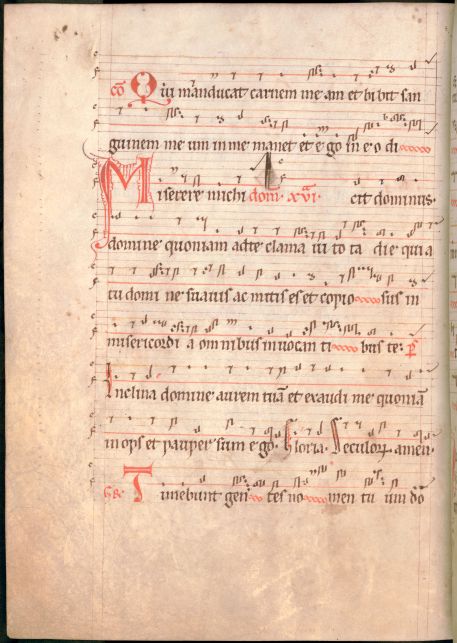 cō Qui manducat carnem me am et bi bit san
guinem me um in me manet et e go in e o di
Miserere michi dom. xvi. cit dominus.
domine quoniam ad te clama ui to ta die qui a
tu domi ne suauis ac mitis es et copio sus in
misericordi a omnibus inuocan ti bus te: p̄s
Inclina domine aurem tuā et exaudi me quoniā
in ops et pauper sum e go. Gloria. Seculorꝝ amen.
Gr. Timebunt gen tes no men tu um dō